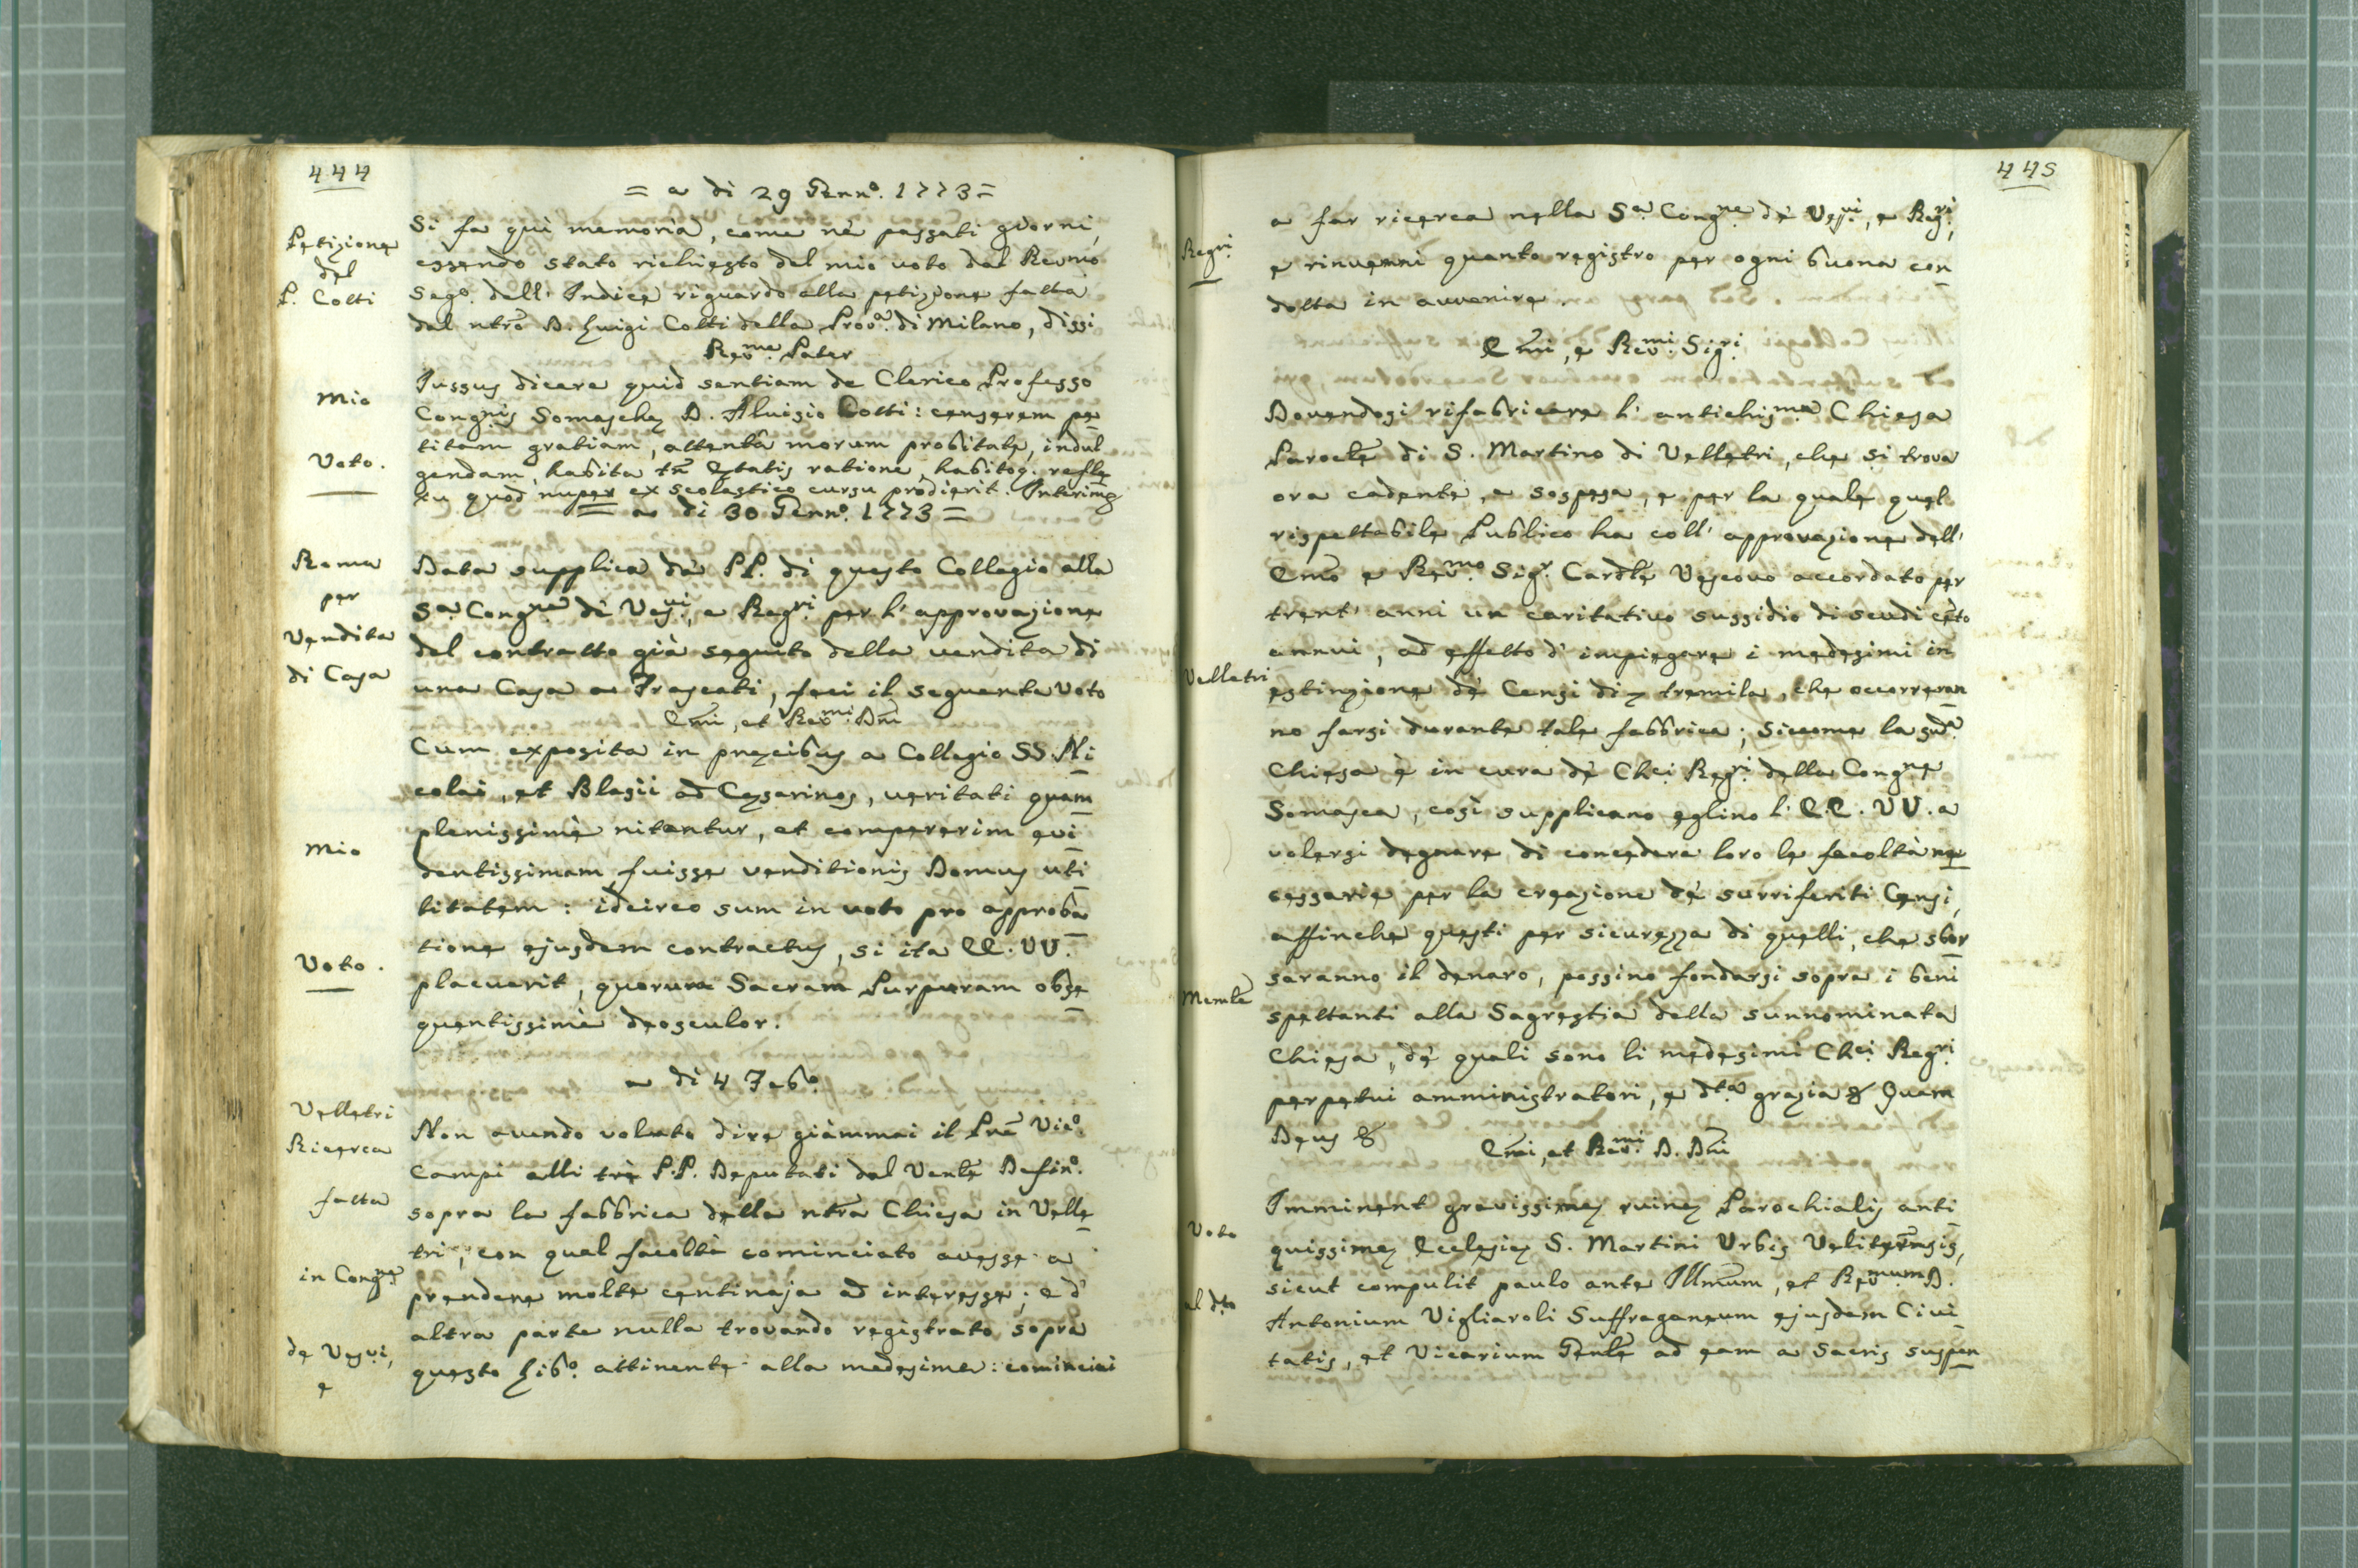 444
= a di 29 Genn.o 1773 =
Petizione
del
P. Cotti
Si fa quì memoria, come nè passati giorni,
essendo stato richiesto del mio voto dal Revmo
Sego. dell' Indice riguardo alla petizione fatta
dal ntro D. Luigi Cotti della Prov.a di Milano, dissi
Rev.me Pater
Mio
Voto.
Jussus dicere quid sentiam de Clerico Professo
Cong.nis Somaschę D. Aluisio Cotti: censerem pe
titam gratiam, attentâ morum probitate, indul
gendam, habita tñ ętatis ratione, habitoq. refle
xu quod nuper ex scolastico cursu prodierit. Interim &
= a di 30 Genn.o 1773 =
Roma
per
Vendita
di Casa
Data supplica dà PP. di questo Collegio alla
S.a Cong.ne di Ves.vi, e Reg.ri per l' approvazione
del contratto già seguito della vendita di
una Casa a Frascati, feci il seguente Voto
Emi, et Rev.mi Dni
Mio
Voto.
Cum exposita in precibus a Collegio SS. Ni
colai, et Blasii ad Cęsarinos, veritati quam
plenissimè nitantur, et compererim evi
dentissimam fuisse venditionis Domus uti
litatem: idcirco sum in voto pro approba
tione ejusdem contractus, si ita EE. VV.
placuerit, quorum Sacram Purpuram obse
quentissimè deosculor.
a di 4 Feb.o
Velletri
Ricerca
fatta
in Cong.ne
de Ves.vi,
e
Non avendo voluto dire giàmmai il Pre Vic.o
Campi alli trè P.P. Deputati dal Venle Defin.o
sopra la fabbrica della ntra Chiesa in Velle
tri, con qual facoltà cominciato avesse a
prendere molte centinaja ad interesse; e d'
altra parte nulla trovando registrato sopra
questo Lib.o attinente alla medesima: cominciai
445
Reg.ri
a far ricerca nella S.a Cong.ne dè Ves.vi, e Reg.ri,
e rinvenni quanto registro per ogni buona con
dotta in avvenire.
Emi, e Rev.mi Sig.ri
Velletri
Memle
Dovendosi rifabricare l' antichis.ma Chiesa
Parocle di S. Martino di Velletri, che si trova
ora cadente, e sospesa, e per la quale quel
rispettabile Publico ha coll' approvazione dell'
Emo e Rev.mo Sig.r Cardle Vescovo accordato per
trent' anni un caritativo sussidio di scudi cẽto
annui, ad effetto d' impiegare i medesimi in
estinzione dè Censi di tremila, che occorreran
no farsi durante tale fabbrica; siccome la sud.a
Chiesa è in cura dè Chci Reg.ri della Cong.ne
Somasca, così supplicano eglino l' E.E. VV. a
volersi degnare di concedere loro le facoltà ne
cessarie per la creazione dè surriferiti Censi,
affinche questi per sicurezza di quelli, che sbor
saranno il denaro, possino fondarsi sopra i beni
spettanti alla Sagrestia della sunnominata
Chiesa, dè quali sono li medesimi Chci Reg.ri
perpetui amministratori, e dta grazia & Quam
Deus &
Emi, et Rev.mi D. Dni
Voto
al dto
Imminent gravissimę ruinę Parochialis anti
quissimę Ecclesię S. Martini Urbis Veliternsis,
sicut compulit paulo ante Illmum, et Rev.mum D.
Antonium Vigliaroli Suffraganeum ejusdem Civi
tatis, et Vicarium Genle ad eam a Sacris suspen